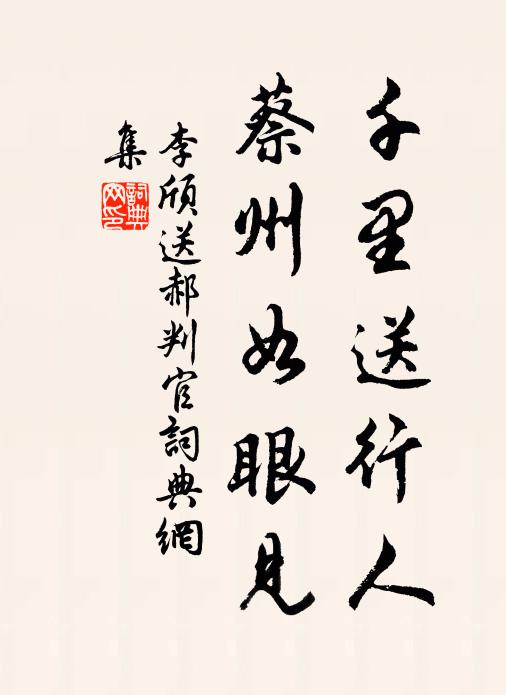 千里送行人
蔡州如眼見
李頎送郝判官詞典網
集
詞典網印